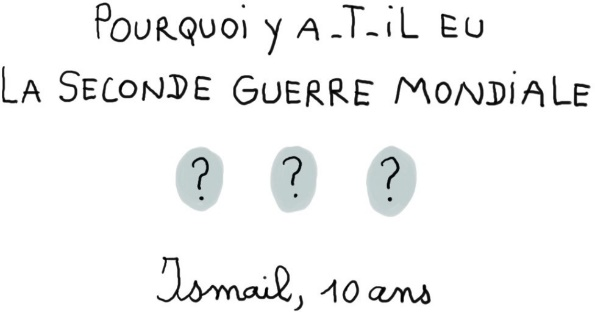 POURQUOI Y A-T-IL EU
LA SECONDE GUERRE MONDIALE
? ? ?
Ismail, 10 ans